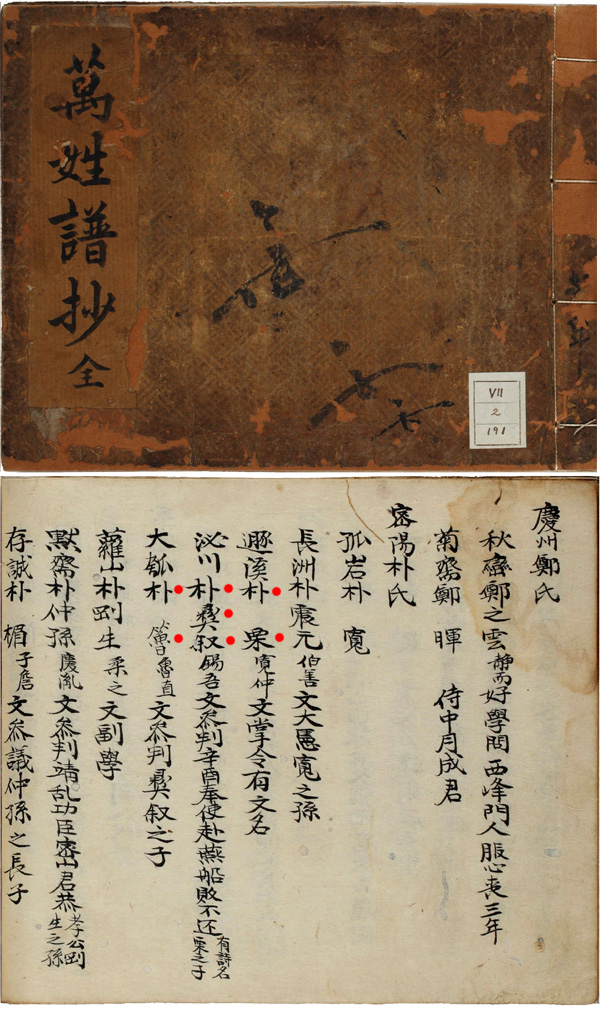 萬姓譜抄 全
VII
2
191
慶州鄭氏
秋齋鄭之雲 靜而 好學問西峰門人服心喪三年
菊齋鄭暉 侍中月成君
密陽朴氏
孤岩朴寬
長洲朴震元 伯善 文大憲寬之孫
遯溪朴栗 寬仲 文掌令有文名
泌川朴彛叙 錫吾 文參判辛酉奉使赴燕船敗不还 有詩名栗之子
大瓠朴簪 魯直 文參判彛叙之子
蘿山朴剛生 柔之 文副學
默齋朴仲孫 慶胤 文參判靖乱功臣密山君恭孝公剛生之孫
存誠朴楣 子詹 文參議仲孫之長子